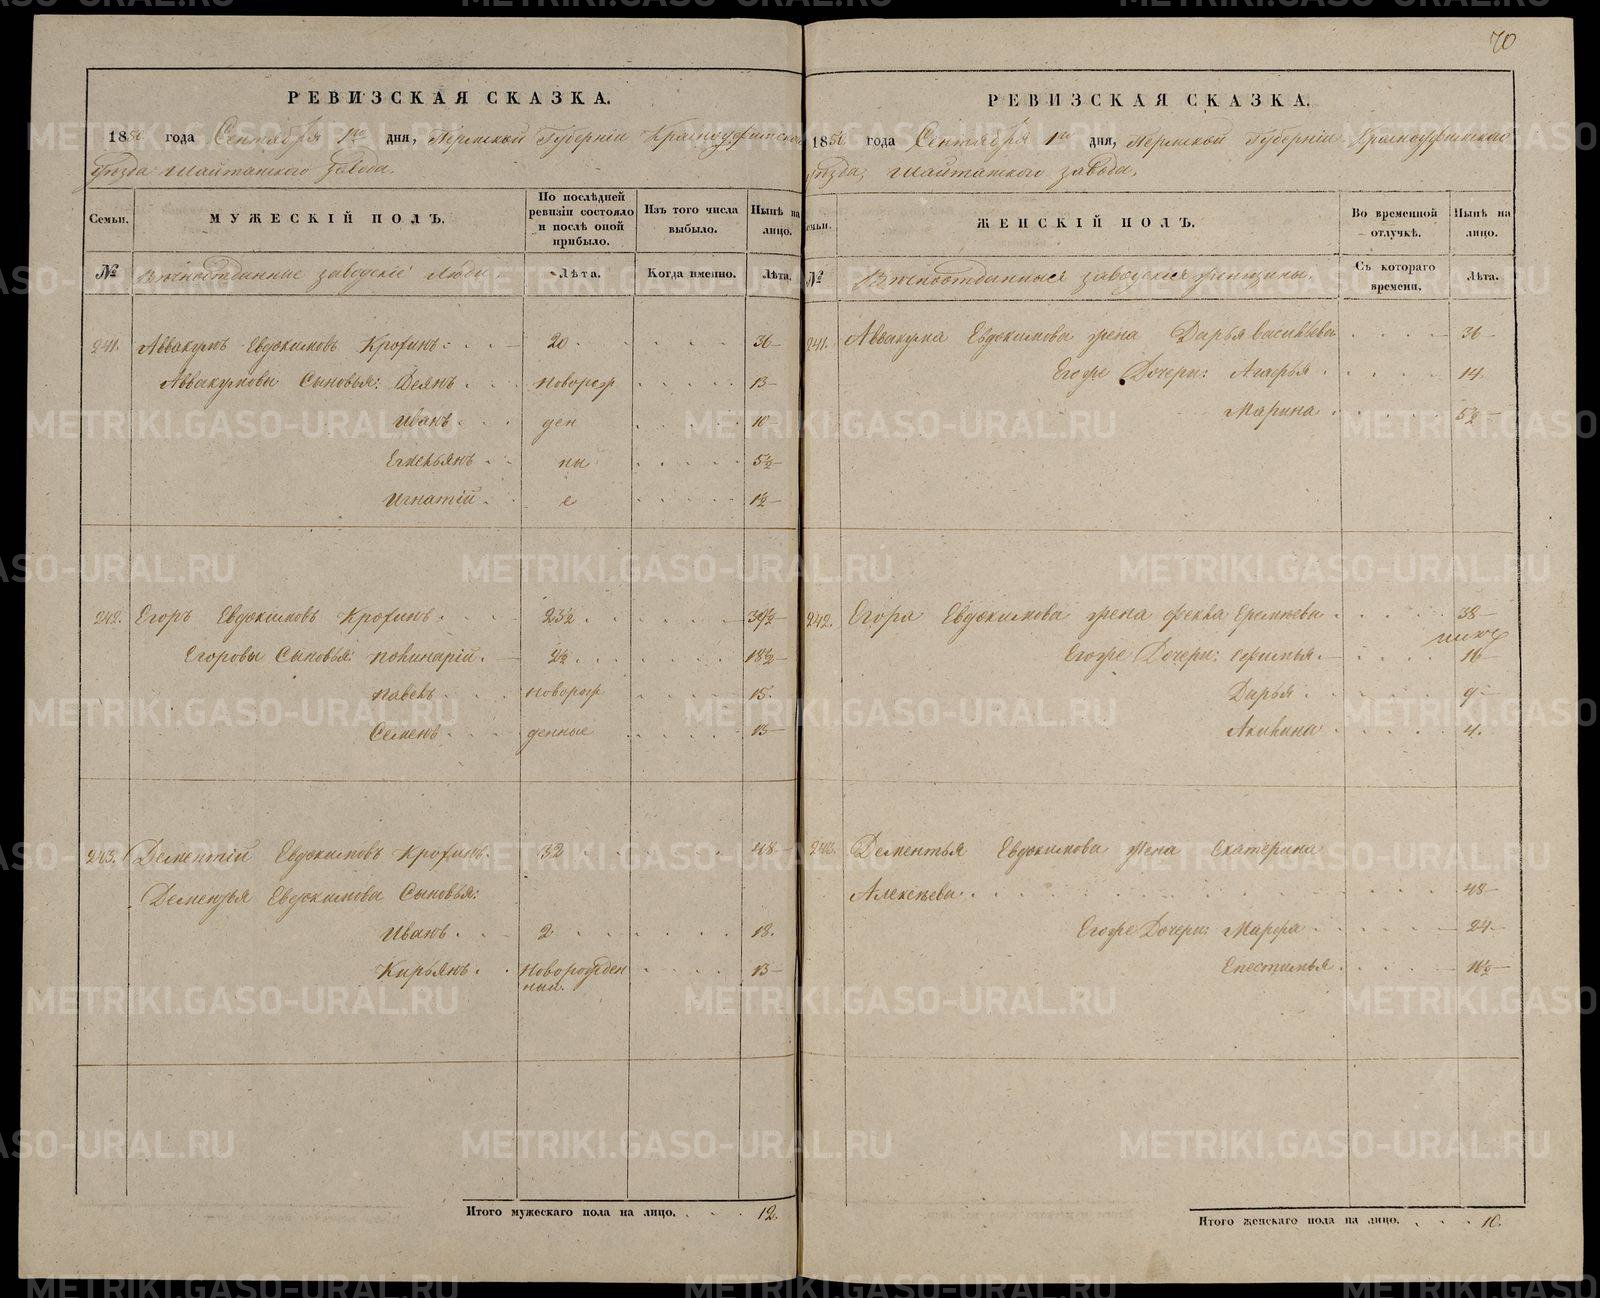 70
РЕВИЗСКАЯ СКАЗКА.
1856 года Сентября 1го дня, Пермской Губерніи Красноуфимскаго
Уѣзда Шайтанскаго Завода.
Семьи.
МУЖЕСКІЙ ПОЛЪ.
По послѣдней ревизіи состояло и послѣ оной прибыло.
Изъ того числа выбыло.
Нынѣ на лицо.
№
Вѣчноотданные заводскіе люди.
Лѣта.
Когда именно.
Лѣта.
241. Аввакумъ Евдокимовъ Крохинъ: 20 36
Аввакумовы Сыновья: Деянъ новорож 13
Иванъ ден 10
Емельянъ ны 5½
Игнатій е 1½
242. Егоръ Евдокимовъ Крохинъ 23½ 39½
Егоровы Сыновья: Полинарій 2½ 18½
Павелъ новорож 15
Семенъ денные 13
243. Дементій Евдокимовъ Крохинъ 32 48
Дементья Евдокимова Сыновья:
Иванъ 2 18
Кирьянъ Новорожден 13
ный.
Итого мужескаго пола на лицо. 12.
РЕВИЗСКАЯ СКАЗКА.
1856 года Сентября 1го дня, Пермской Губерніи Красноуфимскаго
Уѣзда, Шайтанскаго завода.
Семьи.
ЖЕНСКІЙ ПОЛЪ.
Во временной отлучкѣ.
Нынѣ на лицо.
№
Вѣчноотданныя заводскія женщины.
Съ котораго времени.
Лѣта.
241. Аввакума Евдокимова жена Дарья Васильева 36
Егоже Дочери: Агафья 14
Марина 5½
242. Егора Евдокимова жена Фекла Еремѣева 38
Егоже Дочери: Ефимья 16
Дарья 9
Акилина 4
243. Дементья Евдокимова жена Екатерина
Алексѣева 48
Егоже Дочери: Марфа 24
Епестимья 16½
Итого женскаго пола на лицо. 10.
METRIKI.GASO-URAL.RU